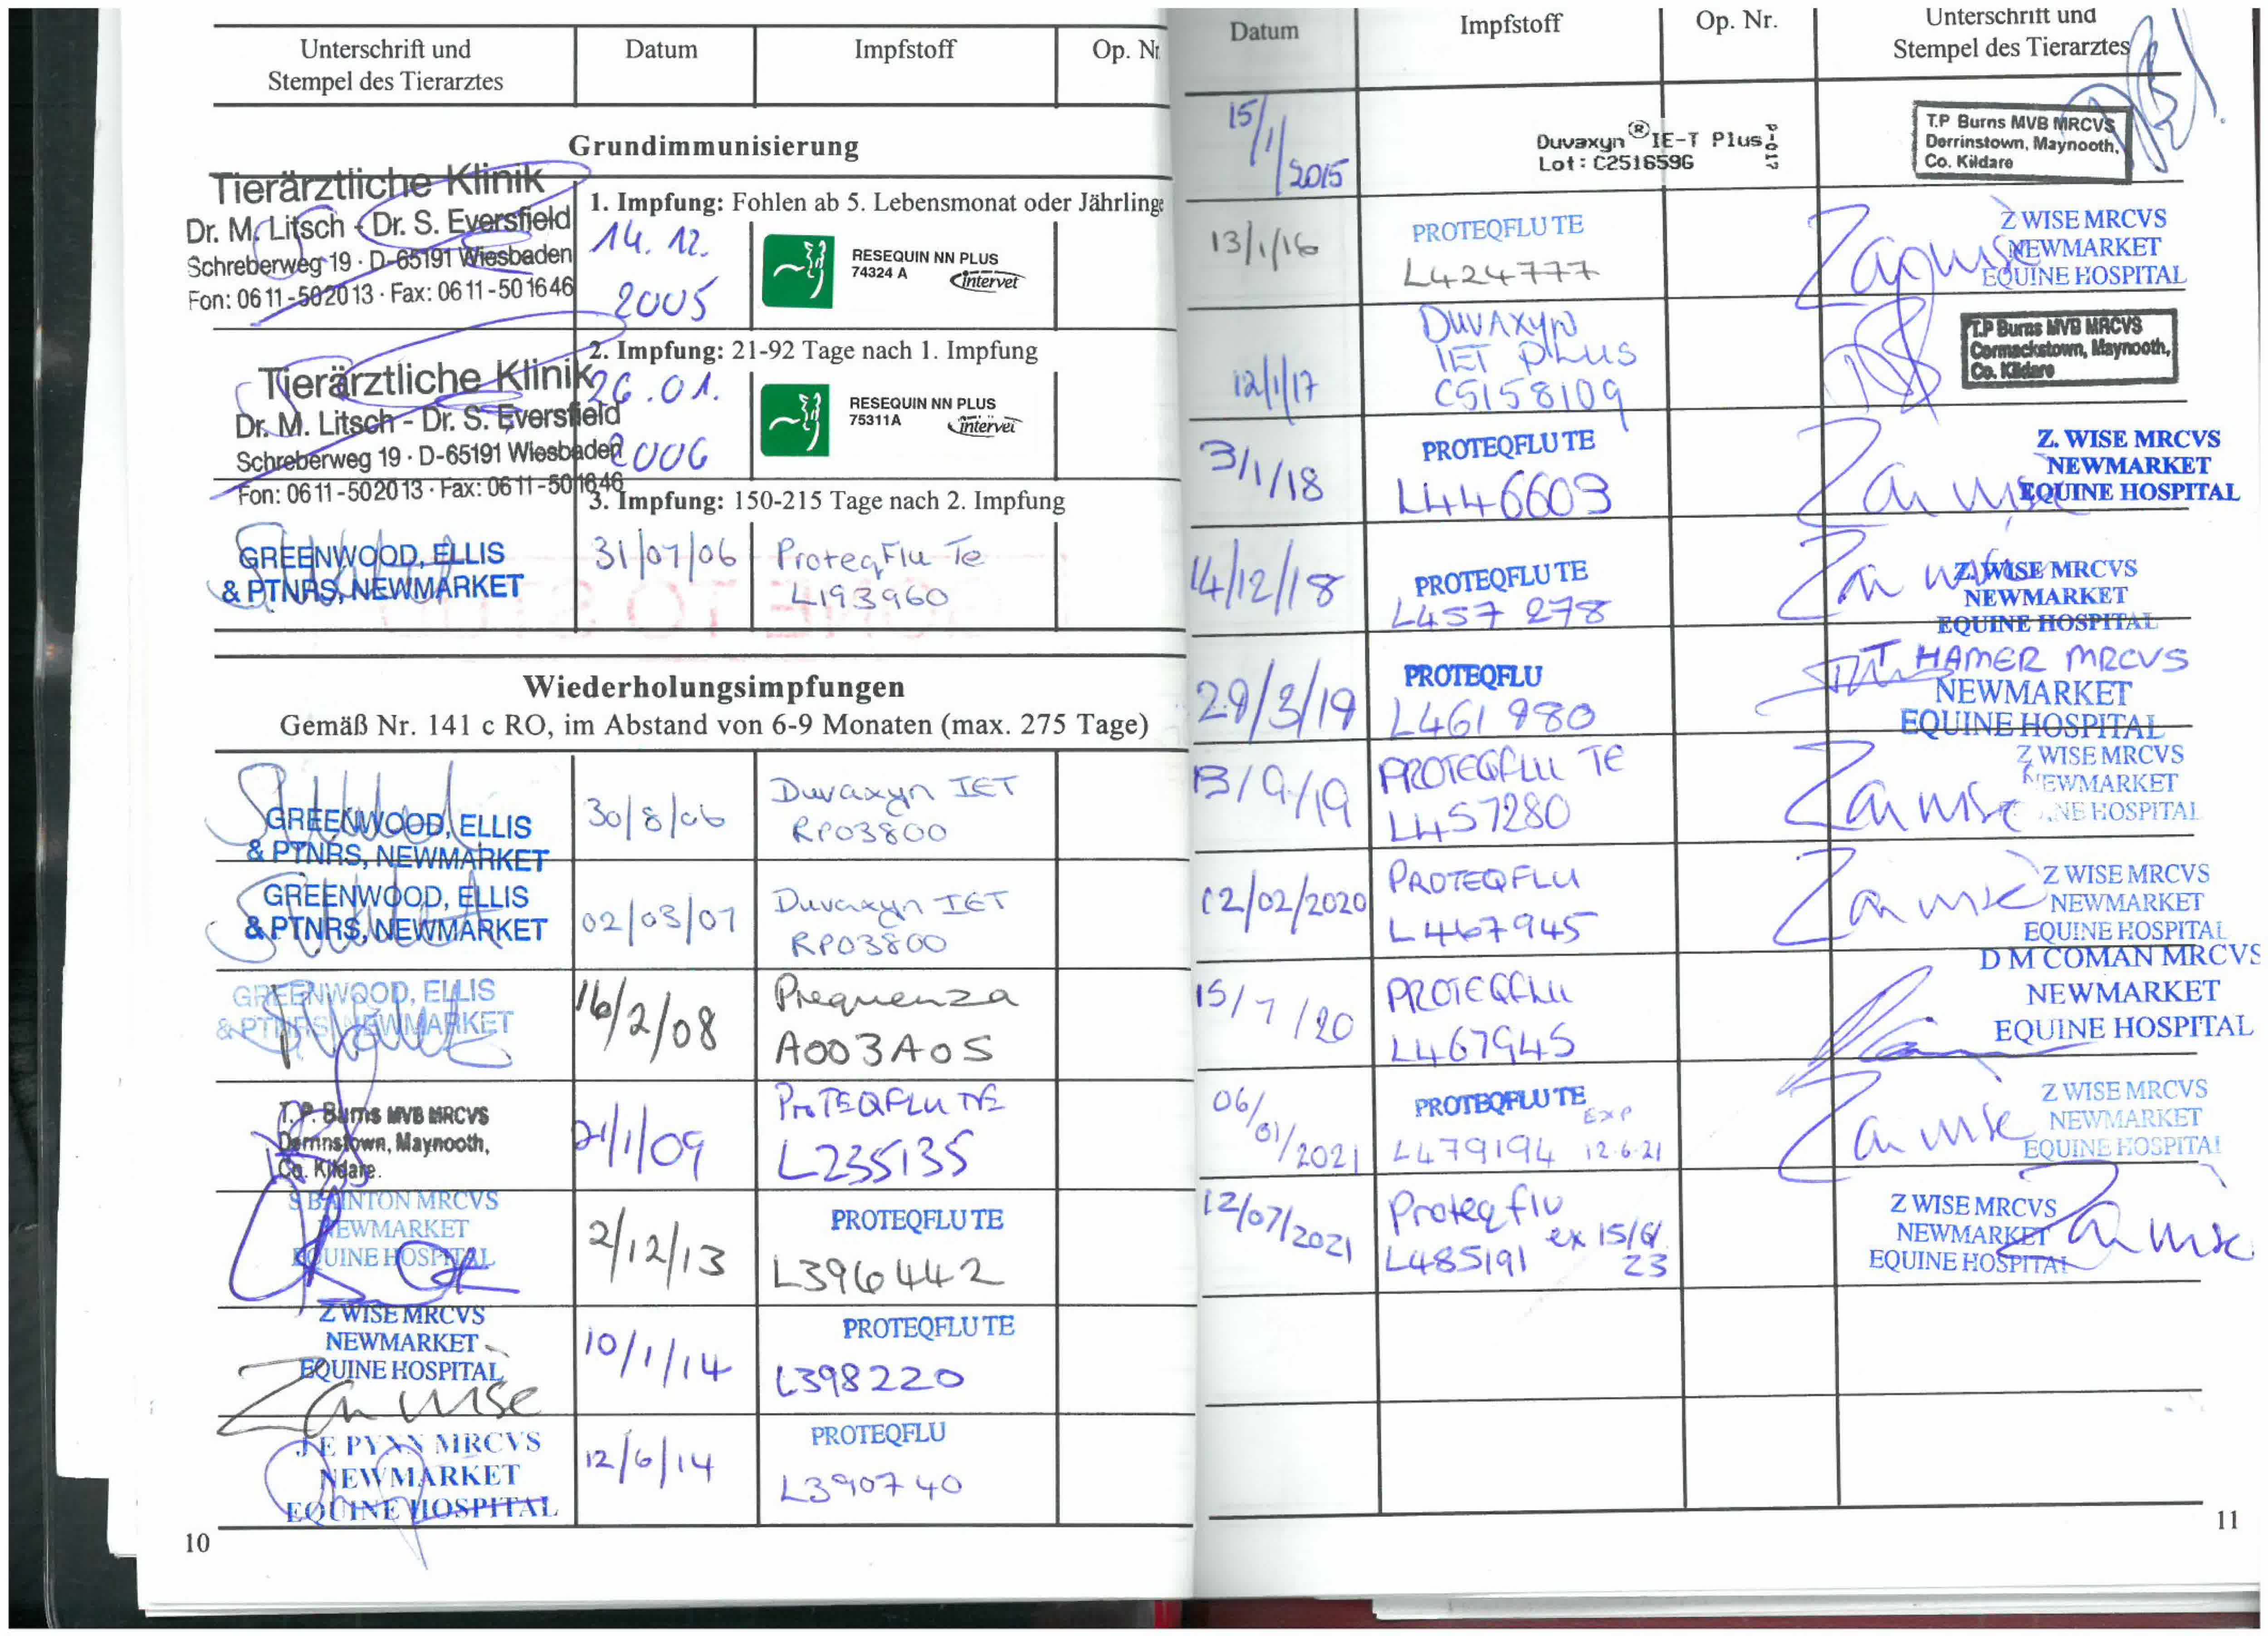 Unterschrift und
Stempel des Tierarztes
Datum
Impfstoff
Op. Nr
Grundimmunisierung
Tierärztliche Klinik
Dr. M. Litsch - Dr. S. Eversfield
Schreberweg 19 · D-65191 Wiesbaden
Fon: 06 11 - 50 20 13 · Fax: 06 11 - 50 16 46
1. Impfung: Fohlen ab 5. Lebensmonat oder Jährlinge
14. 12.
2005
RESEQUIN NN PLUS
74324 A
intervet
2. Impfung: 21-92 Tage nach 1. Impfung
Tierärztliche Klinik
Dr. M. Litsch - Dr. S. Eversfield
Schreberweg 19 · D-65191 Wiesbaden
Fon: 06 11 - 50 20 13 · Fax: 06 11 - 50 16 46
26.01.
2006
RESEQUIN NN PLUS
75311A
intervet
3. Impfung: 150-215 Tage nach 2. Impfung
GREENWOOD, ELLIS
& PTNRS, NEWMARKET
31/07/06
ProteqFlu Te
L193960
Wiederholungsimpfungen
Gemäß Nr. 141 c RO, im Abstand von 6-9 Monaten (max. 275 Tage)
GREENWOOD, ELLIS
& PTNRS, NEWMARKET
30/8/06
Duvaxyn IET
RP03800
GREENWOOD, ELLIS
& PTNRS, NEWMARKET
02/03/07
Duvaxyn IET
RP03800
GREENWOOD, ELLIS
& PTNRS, NEWMARKET
16/2/08
Prequenza
A003A05
T.P. Burns MVB MRCVS
Derrinstown, Maynooth,
Co. Kildare.
21/1/09
ProTEQFLU TE
L235135
S BAINTON MRCVS
NEWMARKET
EQUINE HOSPITAL
2/12/13
PROTEQFLU TE
L396442
Z WISE MRCVS
NEWMARKET
EQUINE HOSPITAL
Zan wise
10/1/14
PROTEQFLU TE
L398220
J E PYNN MRCVS
NEWMARKET
EQUINE HOSPITAL
12/6/14
PROTEQFLU
L390740
10
Datum
Impfstoff
Op. Nr.
Unterschrift und
Stempel des Tierarztes
15/1/2015
Duvaxyn® IE-T Plus
Lot: C251659G
T.P Burns MVB MRCVS
Derrinstown, Maynooth,
Co. Kildare
13/1/16
PROTEQFLU TE
L424777
Z WISE MRCVS
NEWMARKET
EQUINE HOSPITAL
12/1/17
DUVAXYN
IET PLUS
C515810 9
T.P Burns MVB MRCVS
Cormackstown, Maynooth,
Co. Kildare
3/1/18
PROTEQFLU TE
L446603
Z. WISE MRCVS
NEWMARKET
EQUINE HOSPITAL
14/12/18
PROTEQFLU TE
L457 278
Z. WISE MRCVS
NEWMARKET
EQUINE HOSPITAL
29/3/19
PROTEQFLU
L461980
T HAMER MRCVS
NEWMARKET
EQUINE HOSPITAL
13/9/19
PROTEQFLU TE
L457280
Z WISE MRCVS
NEWMARKET
EQUINE HOSPITAL
12/02/2020
PROTEQFLU
L467945
Z WISE MRCVS
NEWMARKET
EQUINE HOSPITAL
15/7/20
PROTEQFLU
L467945
D M COMAN MRCVS
NEWMARKET
EQUINE HOSPITAL
06/01/2021
PROTEQFLU TE
L479194 EXP 12.6.21
Z WISE MRCVS
NEWMARKET
EQUINE HOSPITAL
12/07/2021
Proteqflu
L485191 ex 15/6/23
Z WISE MRCVS
NEWMARKET
EQUINE HOSPITAL
11